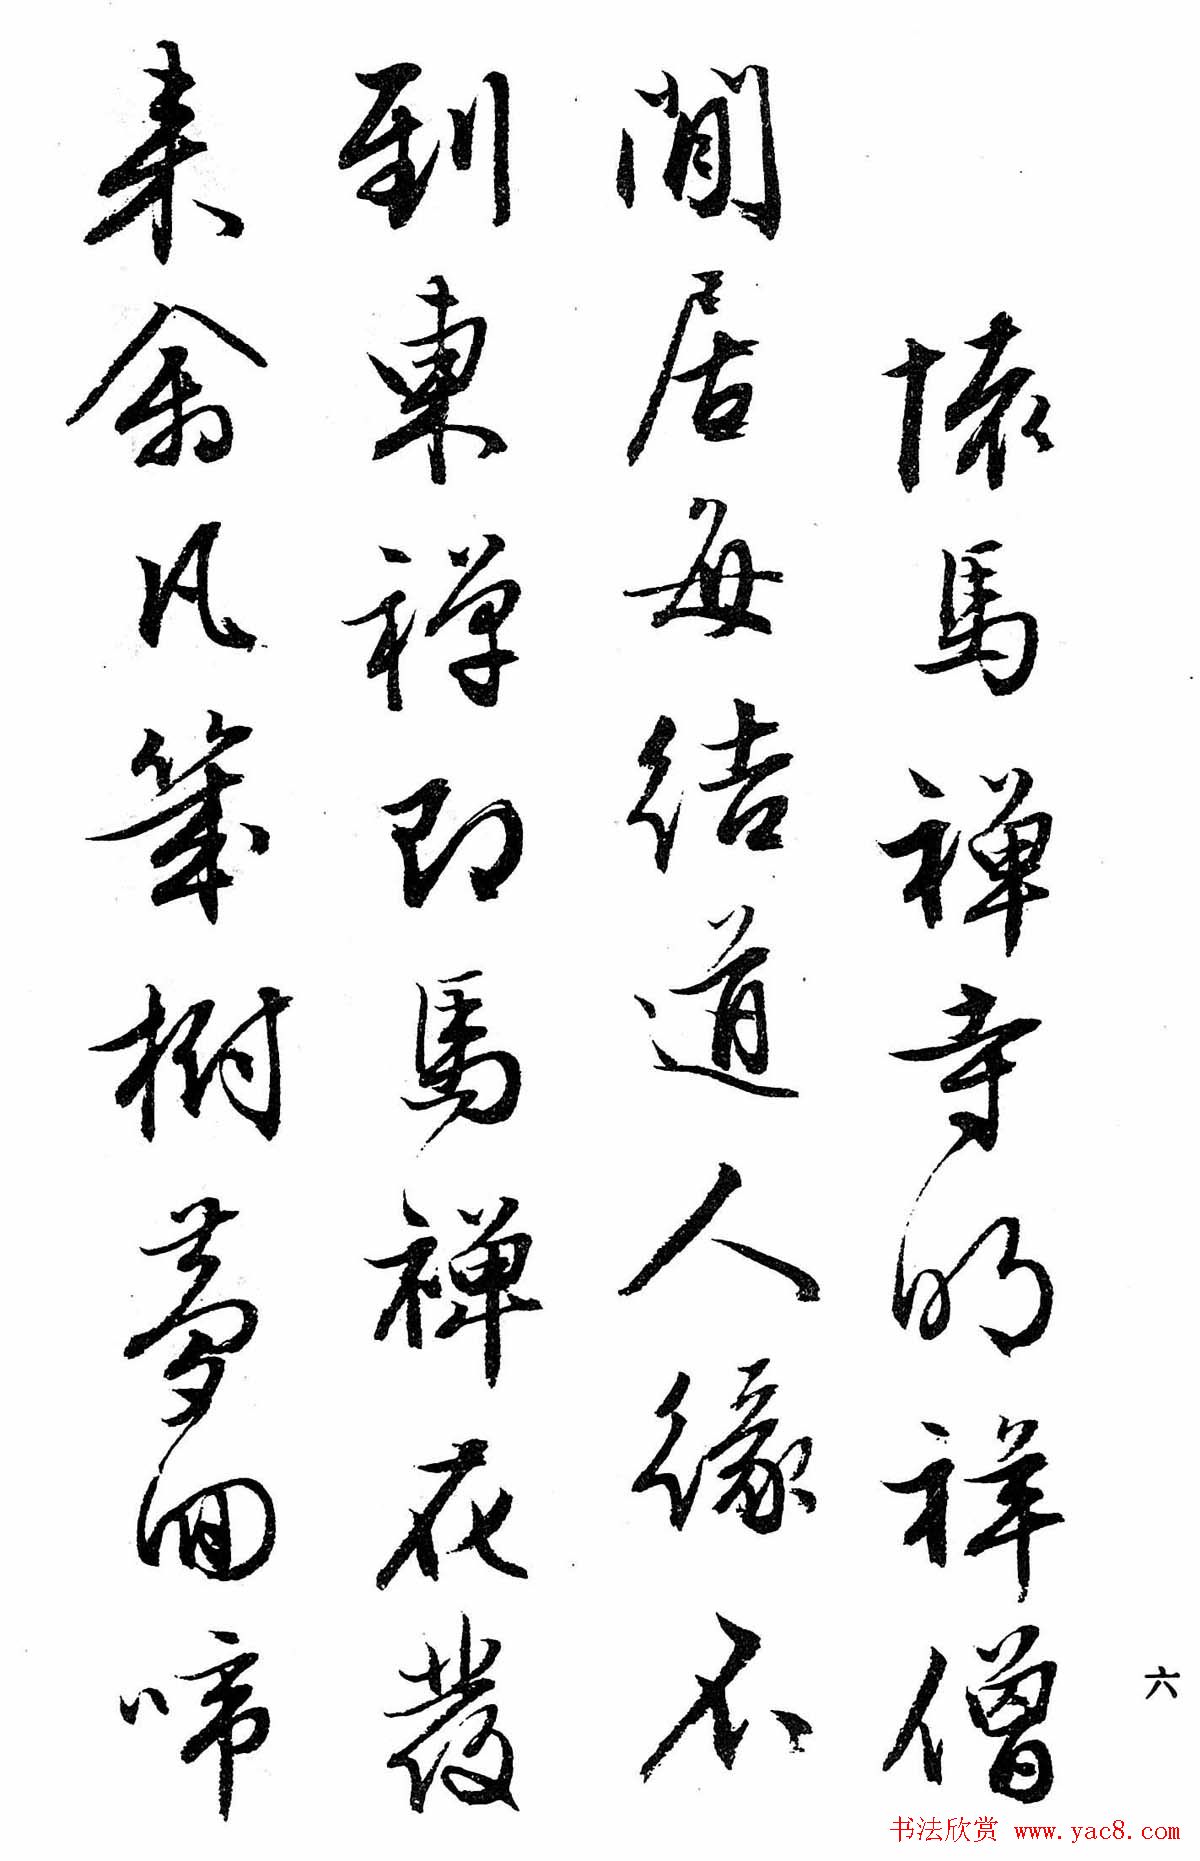 懷馬禪寺明祥僧
閒居每結道人緣不
到東禪即馬禪花發
来禽凡幾樹夢回啼
六
书法欣赏 www.yac8.com